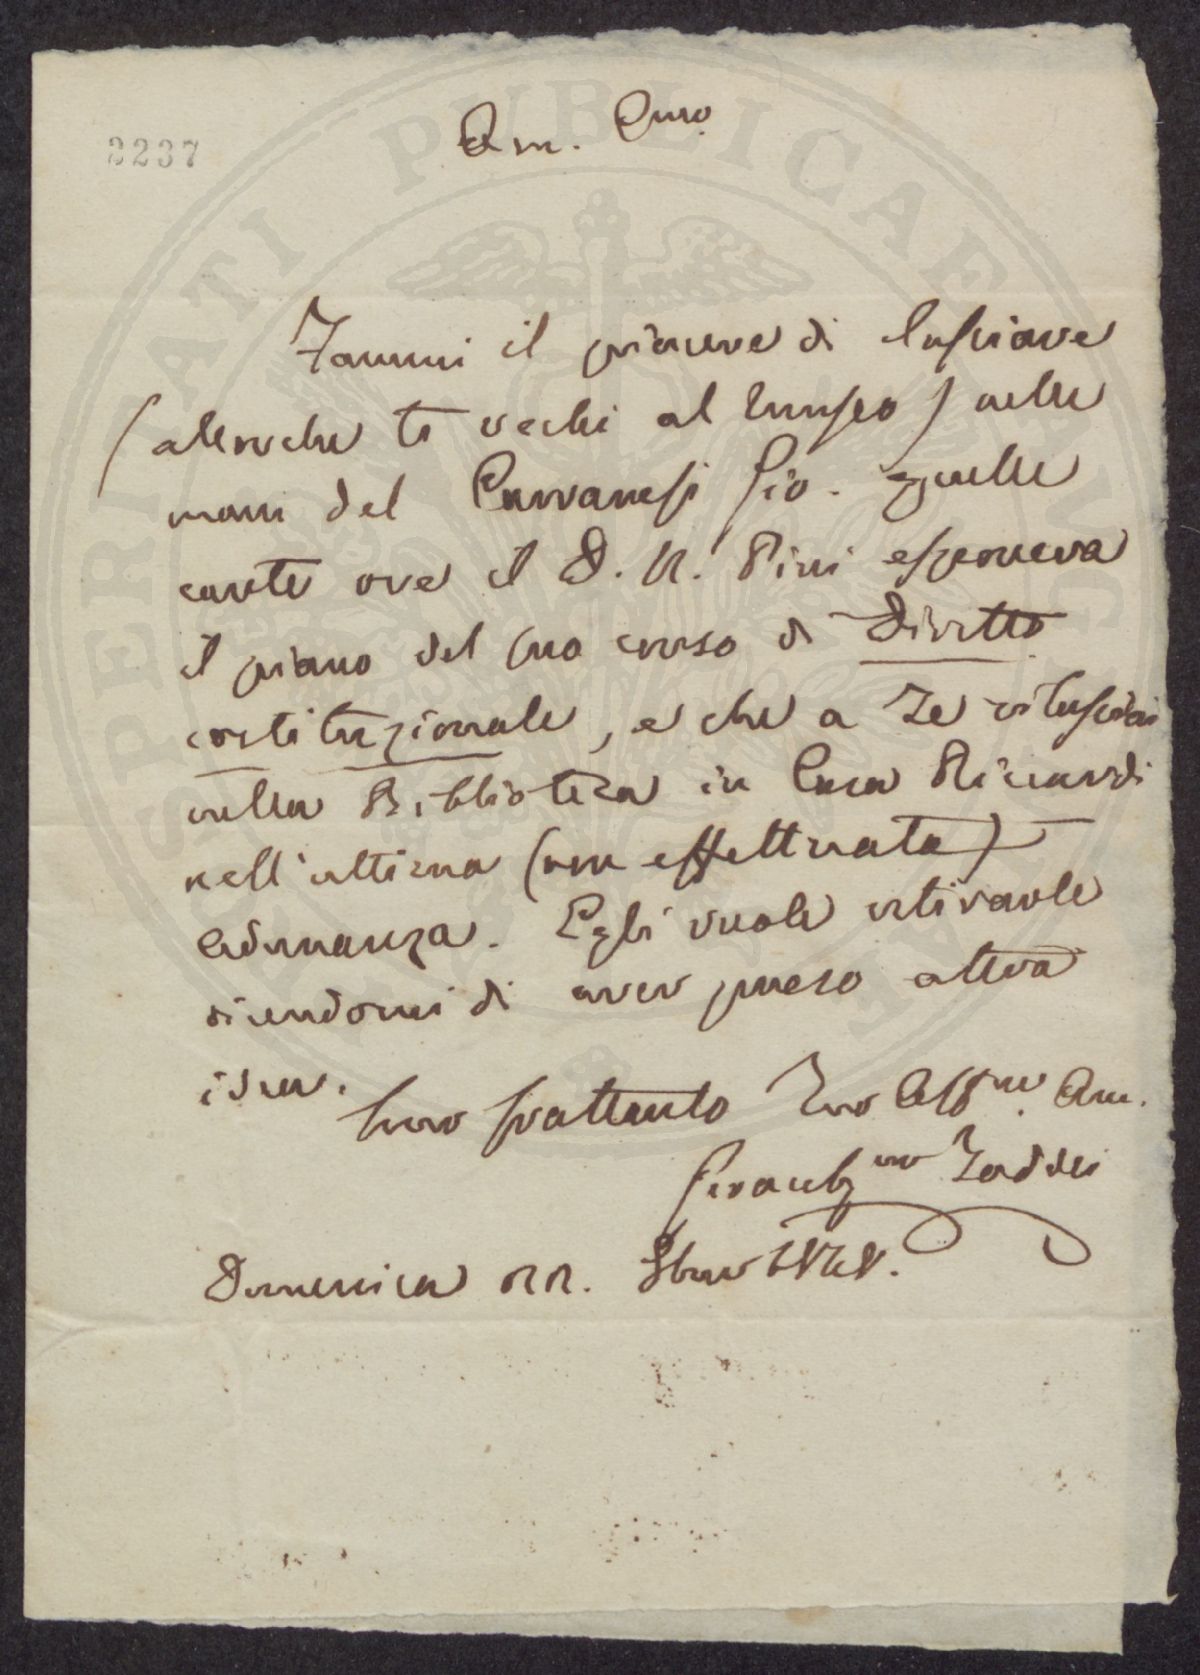 2237
Am. Cmo
Fammi il piacere di lasciare
(allorche te rechi al Museo) nelle
mani del Gio. quelle
carte ove il D. R. Pini esponeva
il piano del suo corso di Diritto
costituzionale, e che a Te rilasciai
nella Biblioteca in Casa Riccardi
nell'ultima (non effettuata)
Adunanza. Egli vuole ritirarle
dicendomi di aver preso altra
idea.
Sono frattanto Tuo Affmo. Am.
Taddei
Domenica
SPERATI PUBLICAE